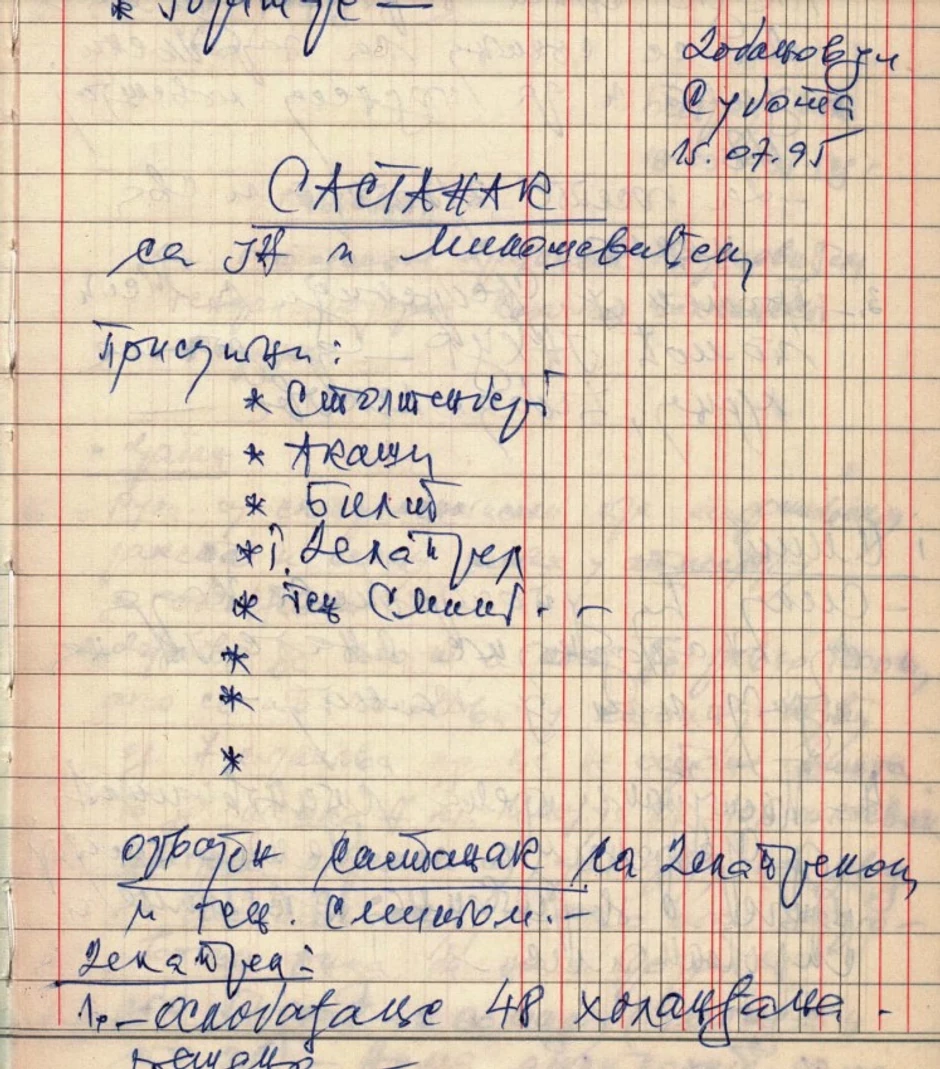 Добановци
Субота
15.07.95
САСТАНАК
са УН и Милошевићем
Присутни:
* Столтенберг
* Акаши
* Билт
* Г. Делапрел
* ген Смит. -
*
*
*
састанак са
и ген. Смитом. -
1. - ослобађање 48 холанђана -